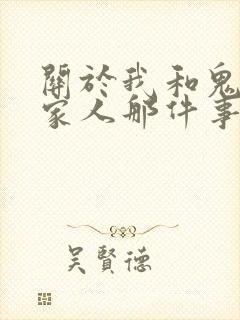 關於我和鬼
家人那件事
吳賢德